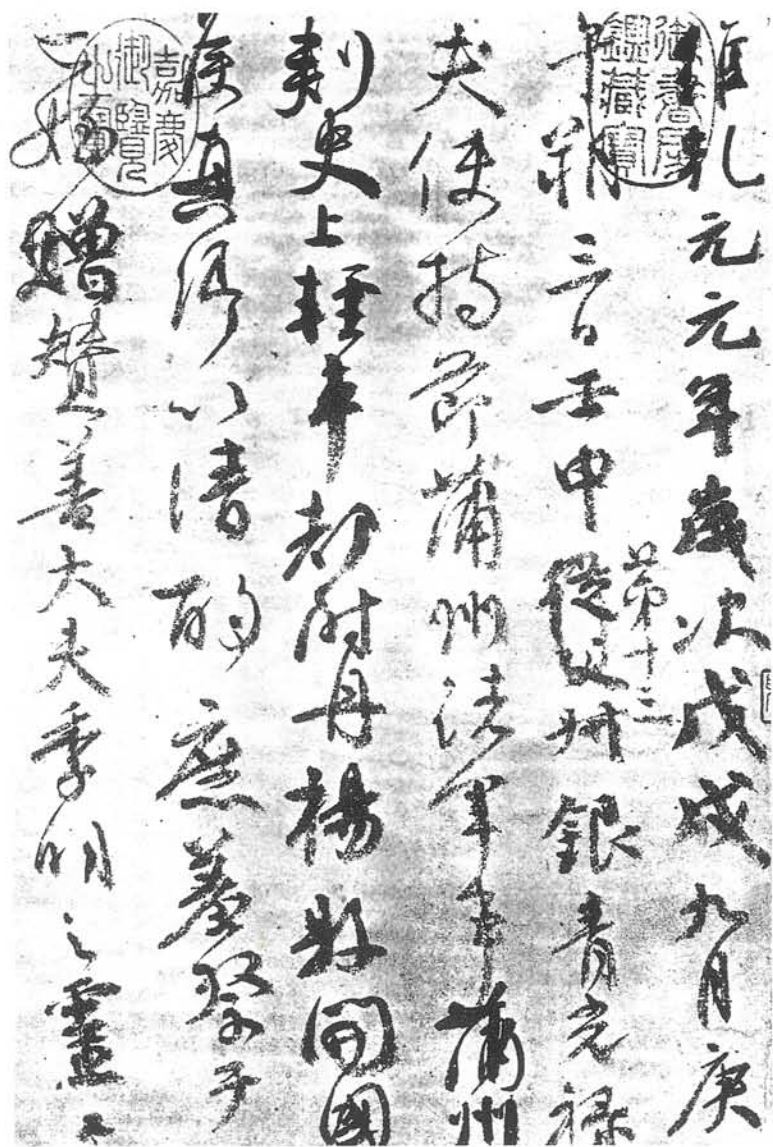 維乾元元年歲次戊戌九月庚
午朔三日壬申第十三從父叔銀青光祿
夫使持節蒲州諸軍事蒲州
刺史上輕車都尉丹楊縣開國
侯真卿以清酌庶羞祭于
亡姪贈贊善大夫季明之靈
御書房鑑藏寶
嘉慶御覽之寶